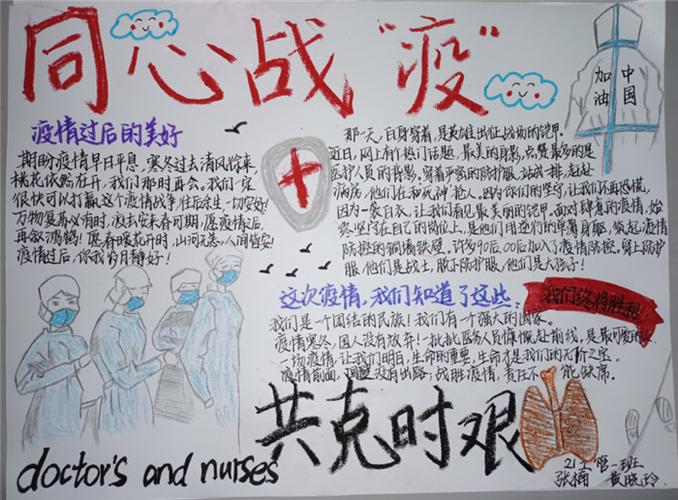 同心战"疫"
中国
加油
疫情过后的美好
期盼疫情早日平息,寒冬过去清风徐来,
桃花依然在开,我们那时再会。我们一定
很快可以打赢这个疫情战争!往后余生,一切安好!
万物复苏必有时,疫去安来春可期,愿疫情过后,
再叙鸿鹄!愿春暖花开时,山河无恙,人间皆安!
疫情过后,你我岁月静好!
那一天,白身穿着,是英雄出征战场的铠甲。
近日,网上有个热门话题,最美的身影,点赞最多的是
医护人员的背影,穿着严密的防护服,站成一排,赶赴
病房,他们在和死神'抢人,因为你们的坚守,让我们不再恐慌,
因为一袭白衣,让我们看见最美丽的铠甲。面对肆虐的疫情,始
终坚守在自己的岗位上,是他们用逆行的单薄身躯,筑起疫情
防控的铜墙铁壁,许多90后、00后加入了疫情防控,穿上防护
服,他们是战士,脱下防护服,他们是大孩子!
这次疫情,我们知道了这些:
我们终将胜利
我们是一个团结的民族!我们有一个强大的国家。
疫情寒冬,国人没有放弃!一批批医务人员慷慨赴前线,是最可爱的人
一场疫情,让我们明白,生命的重要,生命才是我们的无价之宝。
疫情前面,没有出路;战胜疫情,责任不能缺席。
共克时艰
doctor's and nurses
21工管一班
张楠 黄晓玲